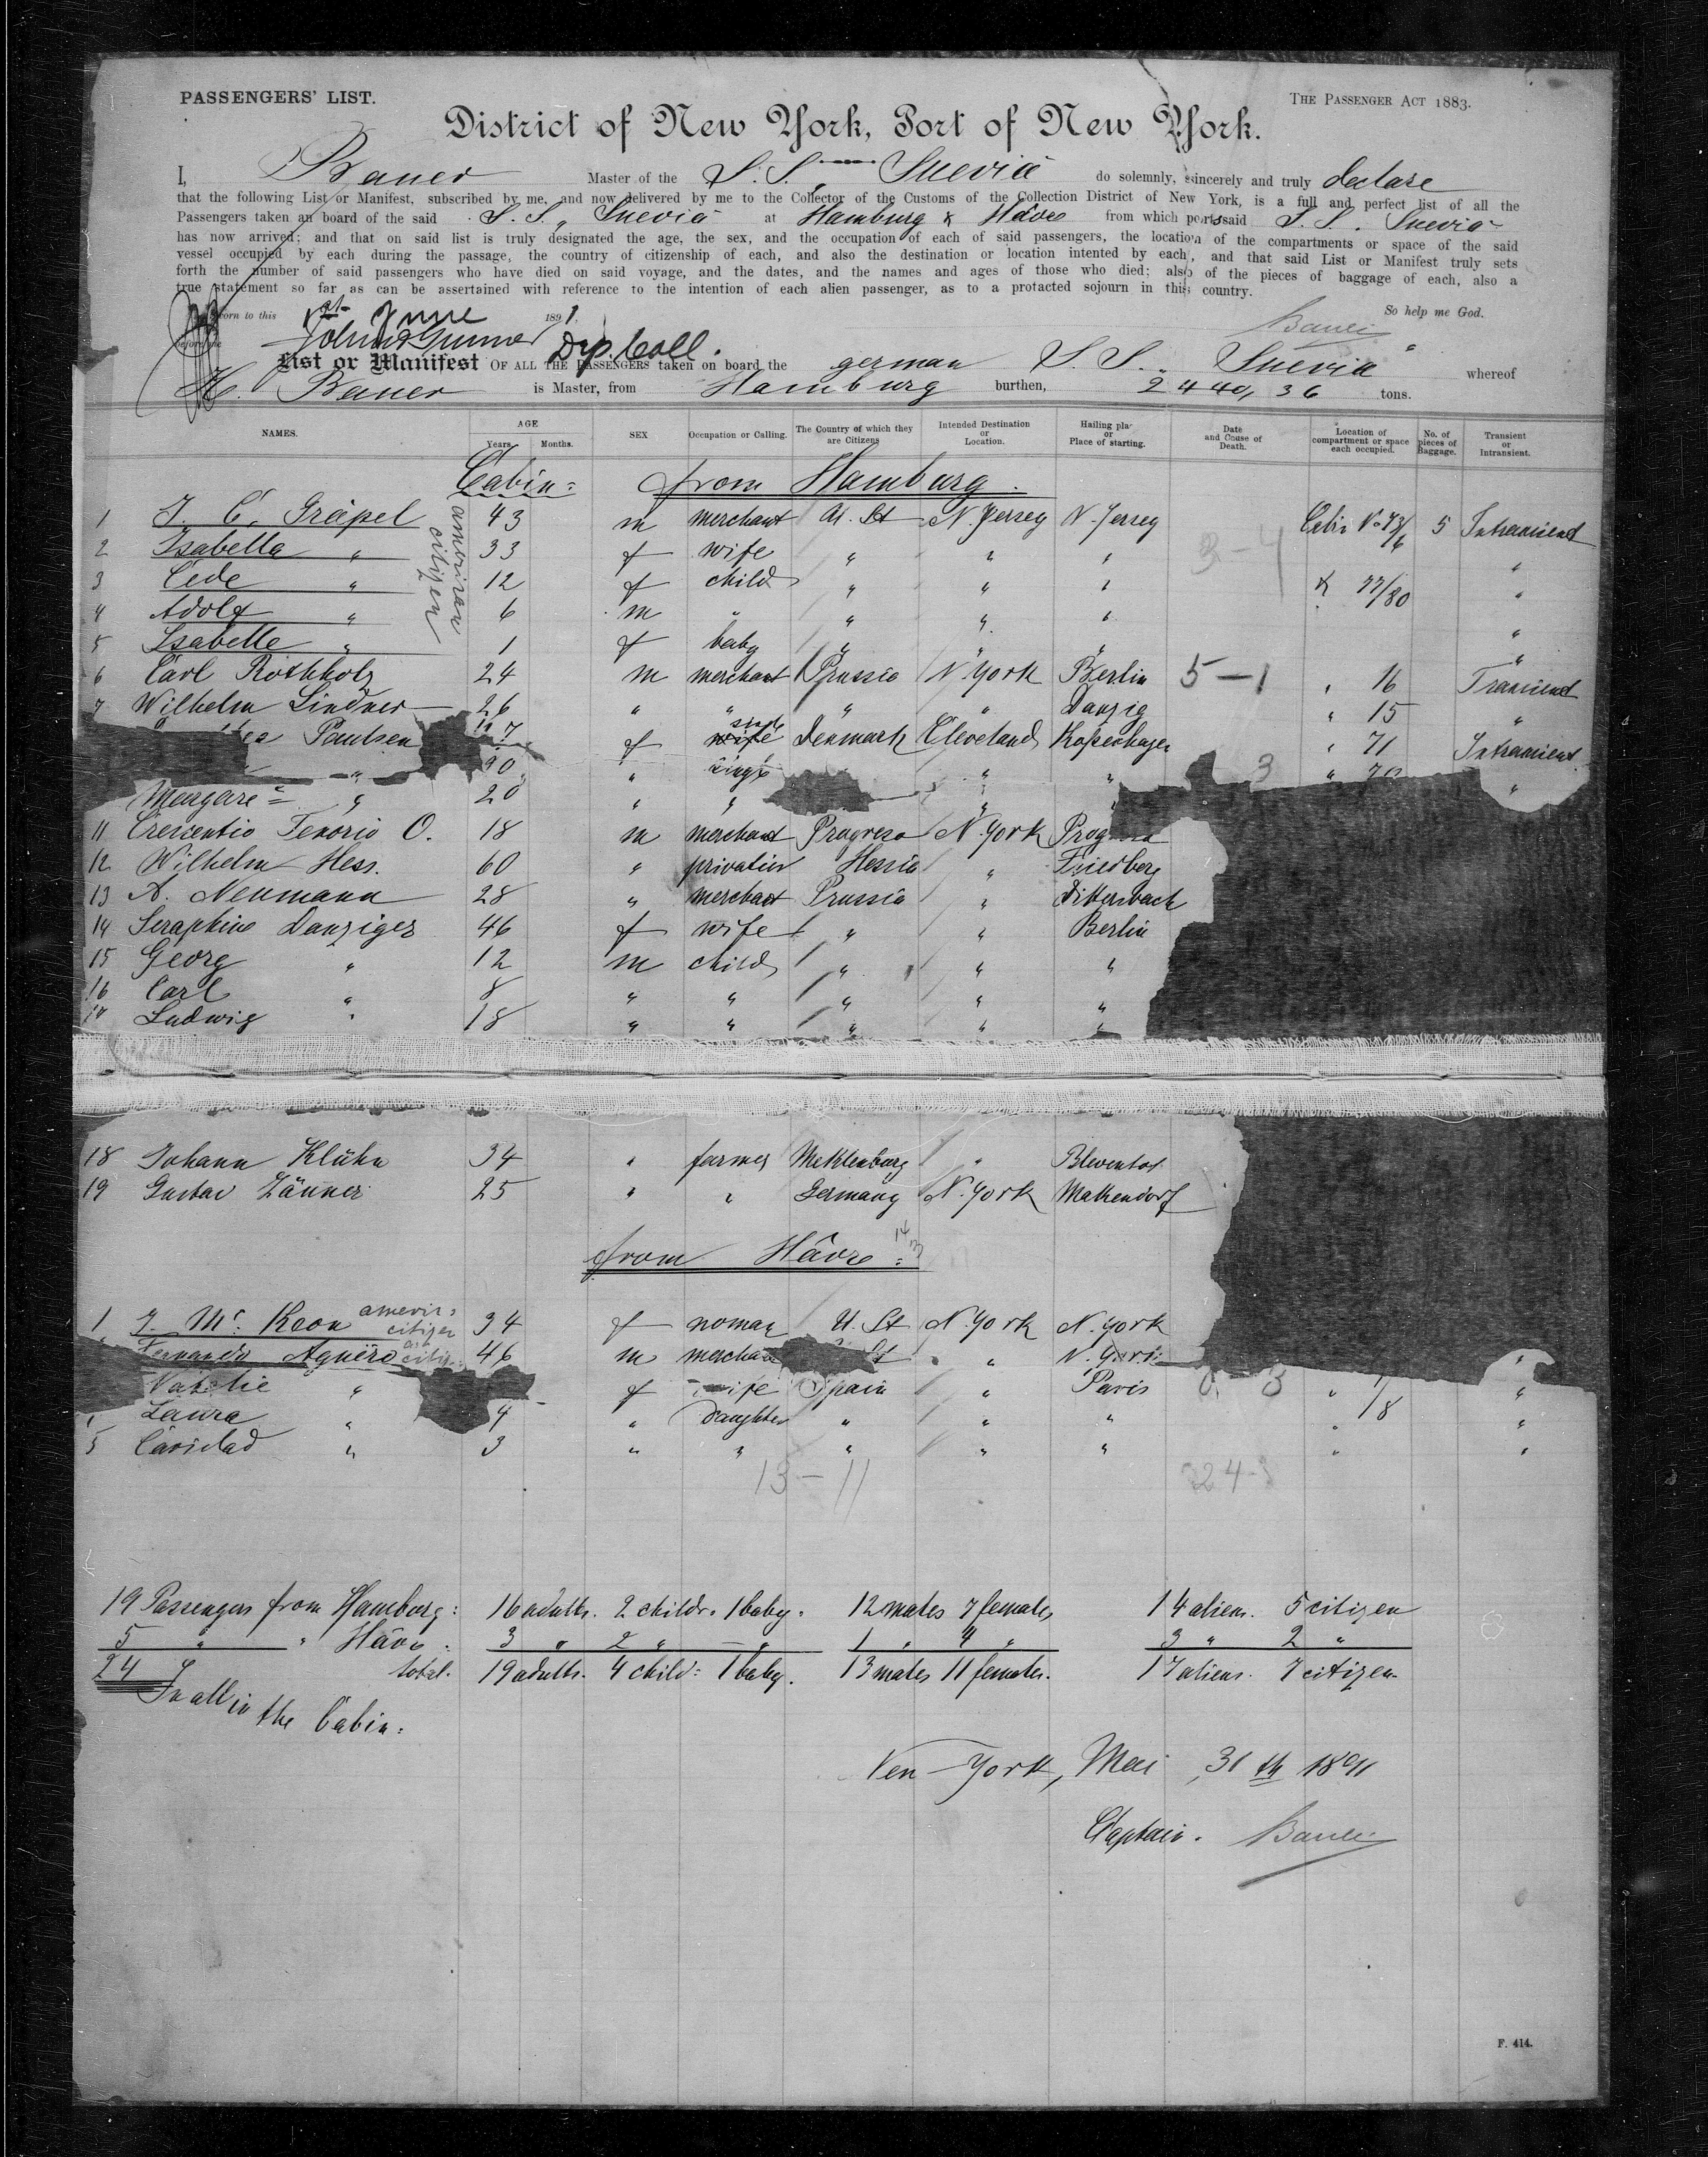 PASSENGERS' LIST.
THE PASSENGER ACT 1883.
District of New York, Port of New York.
I, Bauer Master of the S. S. „ Suevia do solemnly, sincerely and truly declare
that the following List or Manifest, subscribed by me, and now delivered by me to the Collector of the Customs of the Collection District of New York, is a full and perfect list of all the
Passengers taken on board of the said S. S. „ Suevia at Hamburg & Hâvre from which ports said S. S. „ Suevia
has now arrived; and that on said list is truly designated the age, the sex, and the occupation of each of said passengers, the location of the compartments or space of the said
vessel occupied by each during the passage, the country of citizenship of each, and also the destination or location intented by each, and that said List or Manifest truly sets
forth the number of said passengers who have died on said voyage, and the dates, and the names and ages of those who died; also of the pieces of baggage of each, also a
true statement so far as can be assertained with reference to the intention of each alien passenger, as to a protacted sojourn in this country.
orn to this 1st June 1891. So help me God.
before me Dep. Coll. Bauer
List or Manifest OF ALL THE PASSENGERS taken on board the german S. S. „ Suevia whereof
H. Bauer is Master, from Hamburg burthen, 2440,36 tons.
NAMES. AGE Years. Months. SEX Occupation or Calling. The Country of which they are Citizens Intended Destination or Location. Hailing pla or Place of starting. Date and Couse of Death. Location of compartment or space each occupied. No. of pieces of Baggage. Transient or Intransient.
Cabin: from Hamburg.
american citizen
1 J. C. Gräpel 43 m merchant U. St N. Jersey N. Jersey Cabin 5 Intransient
2 Isabella „ 33 f wife „ „ „ „
3 Cede „ 12 f child „ „ „ & 77/80 „
4 Adolf „ 6 m „ „ „ „ „
5 Isabelle „ 1 f baby „ „ „ „
6 Carl Rothholz 24 m merchant Prussia N. York Berlin 5 – 1 „ 16 Transient
7 Wilhelm Lindner 26 „ „ „ „ Danzig „ 15 „
Paulsen f single wife Denmark Cleveland Kopenhagen „ 71 Intransient
„ „ single „ „ 3 „
Margare „ 20 „ „ „ „
11 Crescentio Tenorio O. 18 m merchant Progreso N. York
12 Wilhelm Hess. 60 „ privatier Hessia „ Friedberg
13 A. Neumann 28 „ merchant Prussia „ Dittersbach
14 Seraphine Danziger 46 f wife „ „ Berlin
15 Georg „ 12 m child „ „ „
16 Carl „ 8 „ „ „ „ „
17 Ludwig „ 18 „ „ „ „ „
18 Johann Klühn 34 „ farmer Meklenburg „
19 Gustav Zänner 25 „ „ Germany N. York Makendorf
from Hâvre:
1 J. Mc. Keon americ: citizen 34 f woman U. St N. York N. York
Fernando Agüero 46 m mercha St „ N. York „
Natalie „ f wife Spain „ Paris 3 „ „
Laura „ 4 „ daughter „ „ „ 18 „
5 Caridad „ 3 „ „ „ „ „ „ „
13 – 11
19 Passengers from Hamburg: 16 adults. 2 childr. 1 baby. 12 males 7 females 14 aliens. 5 citizen
5 „ „ Hâvre: 3 „ 2 „ — „ 1 „ 4 „ 3 „ 2 „
24 total. 19 adults. 4 child: 1 baby. 13 males 11 females. 17 aliens. 7 citizen.
In all in the Cabin:
New-York, Mai 31 th 1891
Captain. Bauer
F. 414.